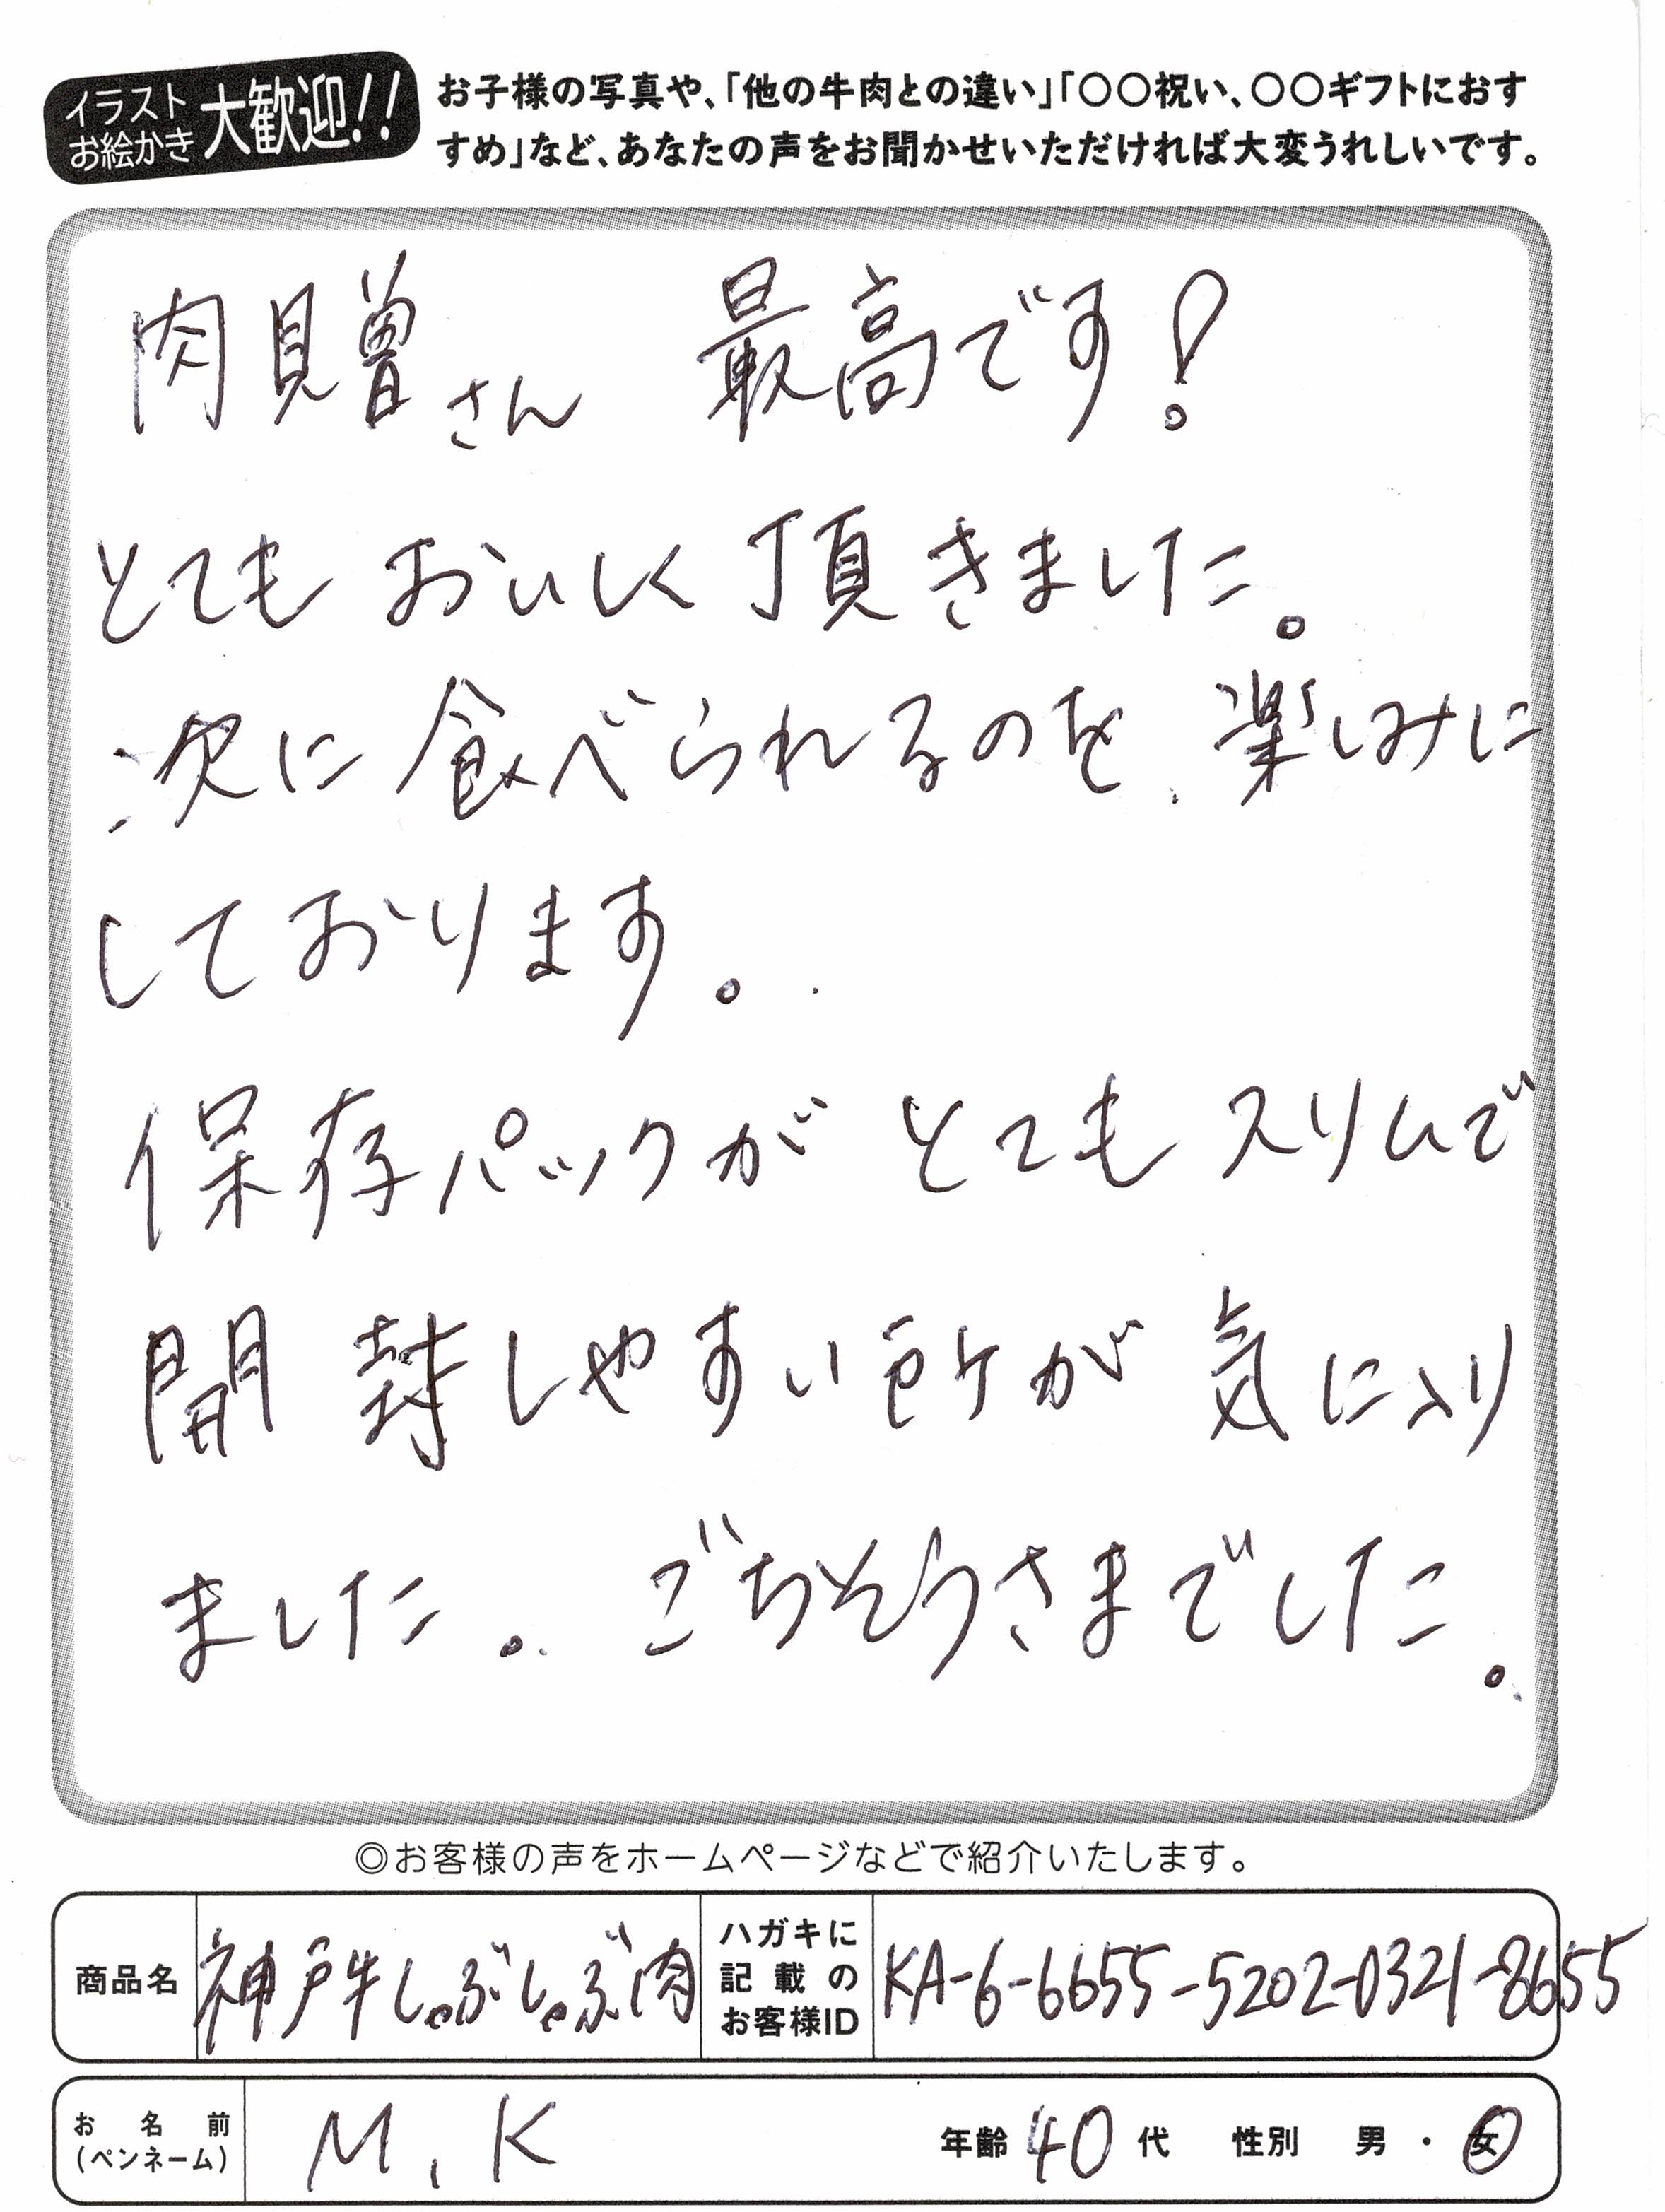 イラスト
お絵かき
大歓迎!!
お子様の写真や、「他の牛肉との違い」「〇〇祝い、〇〇ギフトにおす
すめ」など、あなたの声をお聞かせいただければ大変うれしいです。
肉贈さん 最高です!
とても おいしく頂きました。
次に食べられるのを、楽しみに
しております。
保存パックが とても スリムで
開封しやすい所が 気に入り
ました。 ごちそうさまでした。
◎お客様の声をホームページなどで紹介いたします。
商品名 神戸牛しゃぶしゃぶ肉
ハガキに
記載の
お客様ID
KA-6-6655-5202-0321-8655
お名前
(ペンネーム)
M.K
年齢 40 代 性別 男 ・ 女